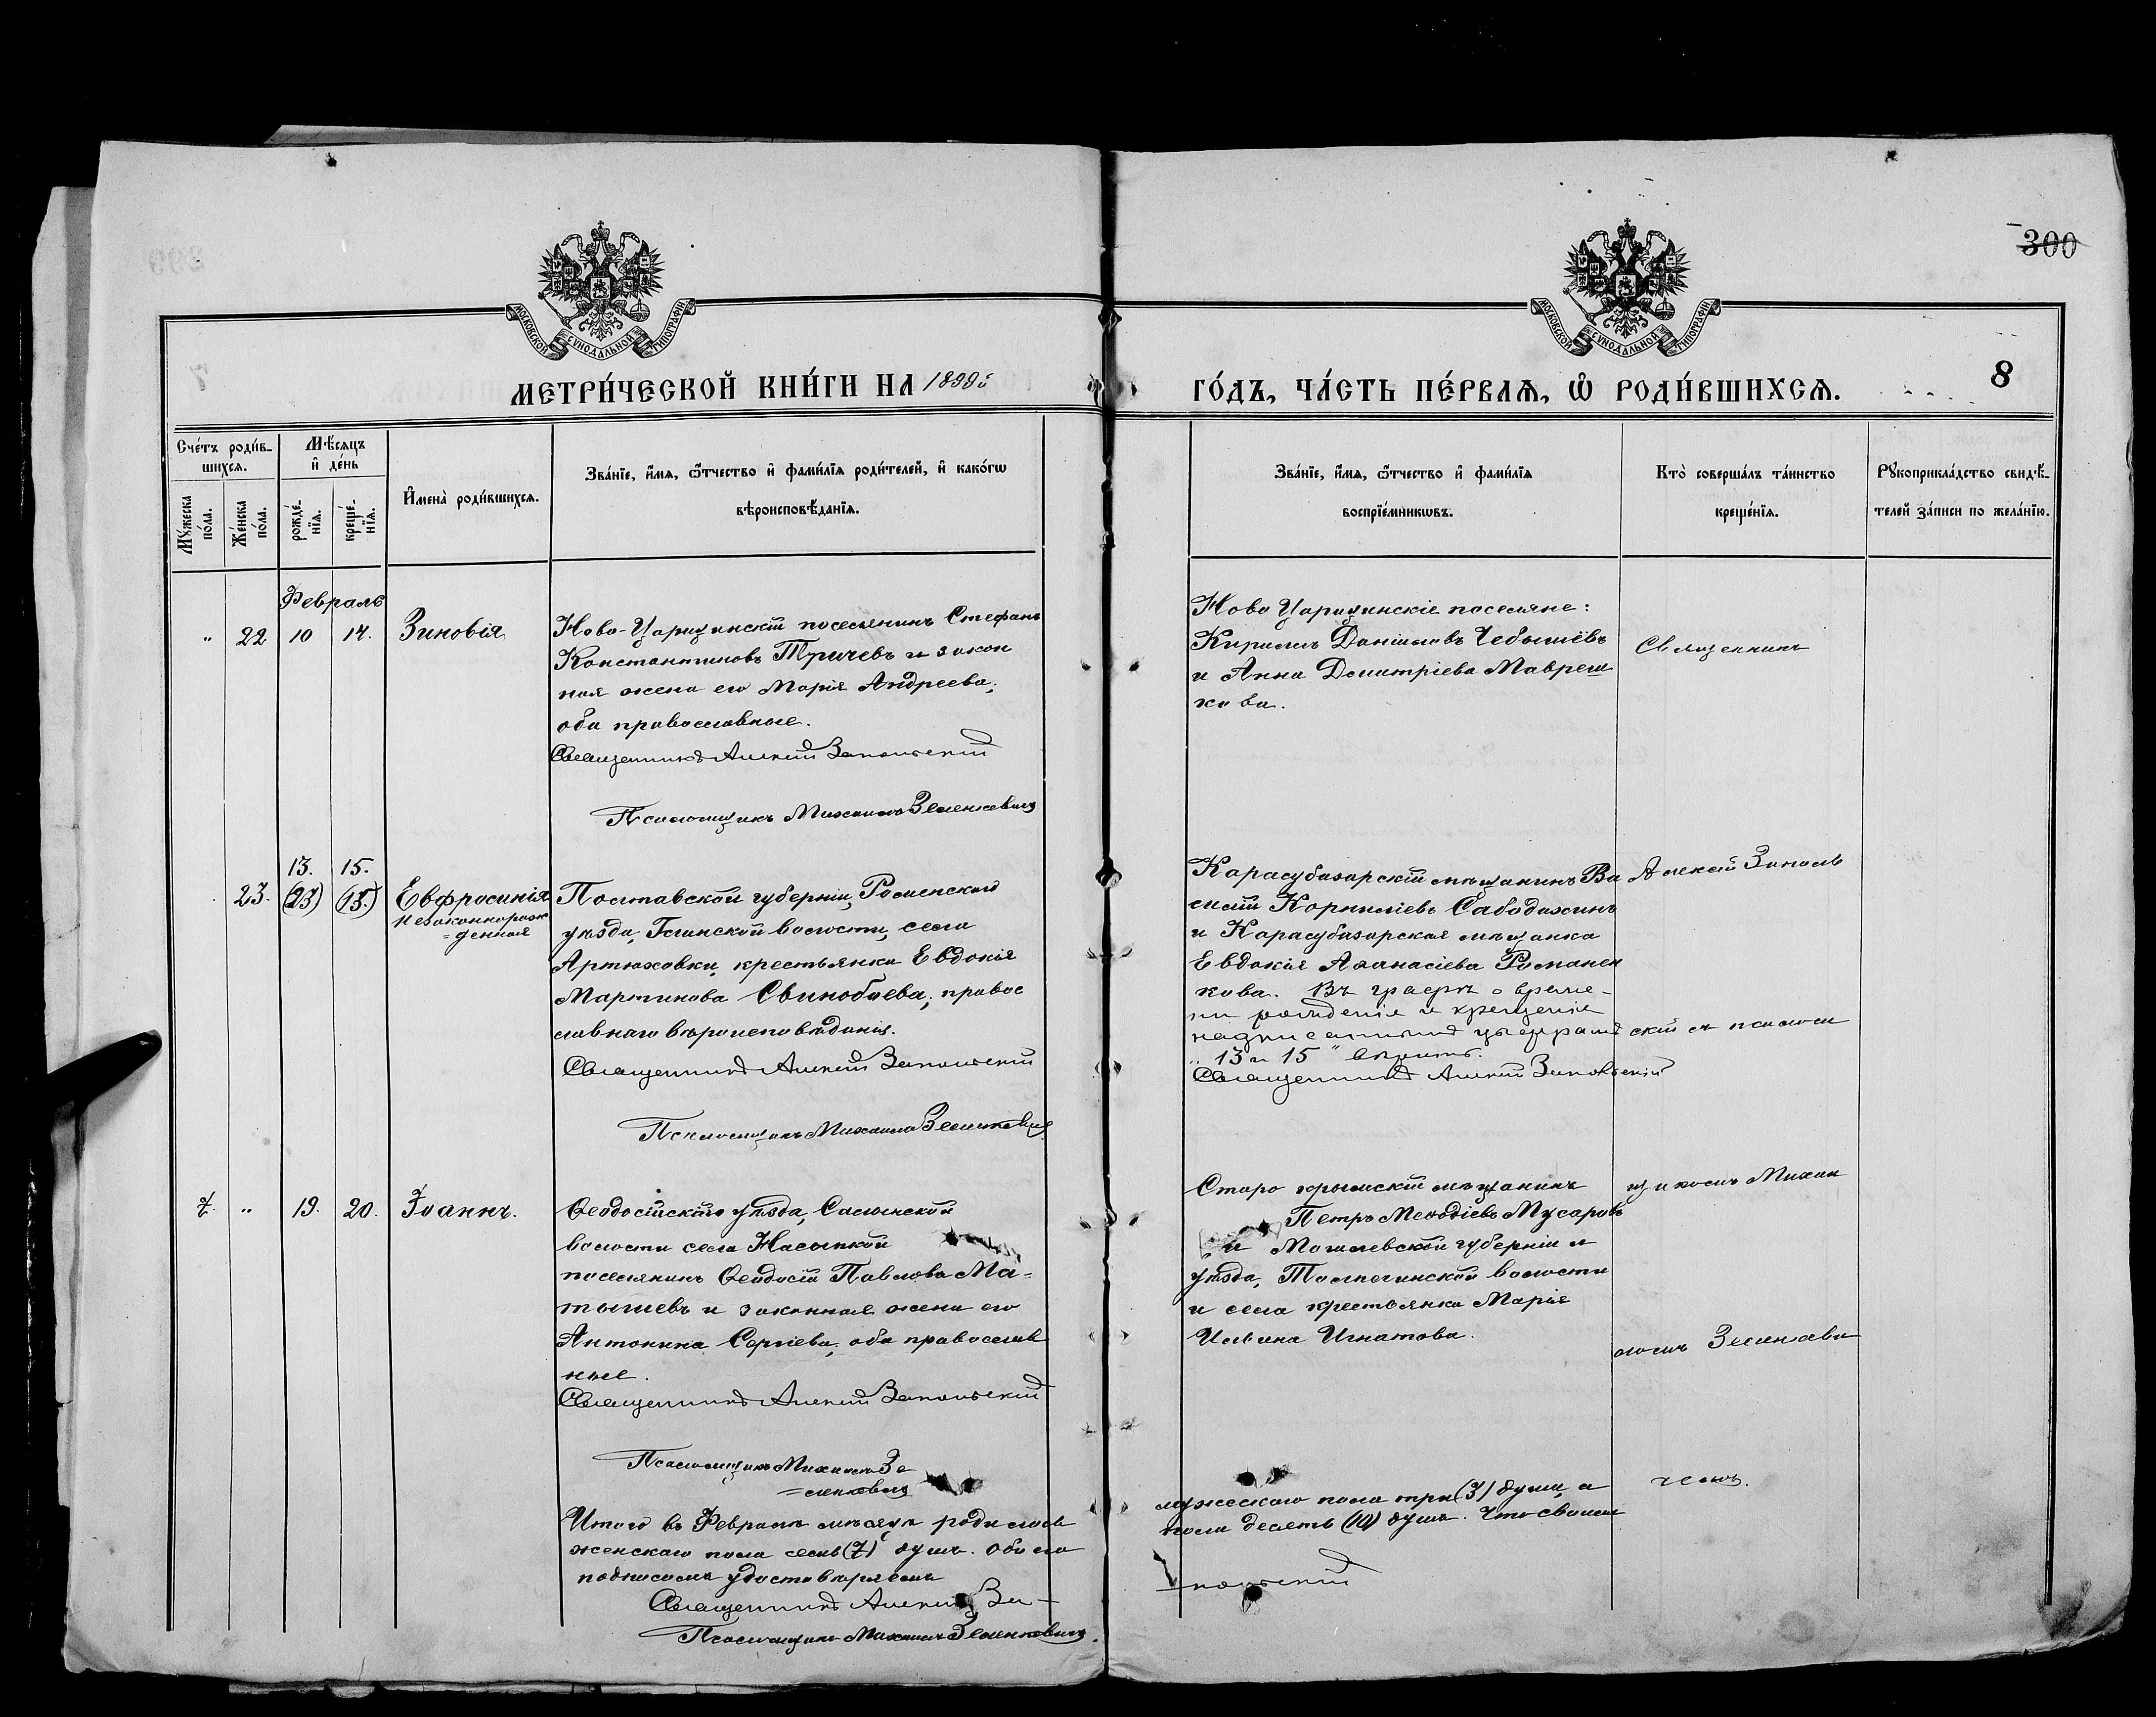 300
МОСКОВСКОЙ СѴНОДАЛЬНОЙ ТИПОГРАФІИ
МОСКОВСКОЙ СѴНОДАЛЬНОЙ ТИПОГРАФІИ
МЕТРИ́ЧЕСКОЙ КНИ́ГИ НА 1899й
ГО́ДЪ, ЧА́СТЬ ПЕ́РВАѦ, Ѡ РОДИ́ВШИХСѦ.
8
Сче́тъ роди́в-
шихсѧ.
Мѣ́сѧцъ
и҆ де́нь
Мꙋ́жеска
по́ла.
Же́нска
по́ла.
рожде́-
нїѧ.
креще́-
нїѧ.
И҆мена̀ роди́вшихсѧ.
Зва́нїе, и҆́мѧ, ѻ҆́тчество и҆ фами́лїѧ роди́телей, и҆ како́гѡ
вѣроисповѣ́данїѧ.
Зва́нїе, и҆́мѧ, ѻ҆́тчество и҆ фами́лїѧ
воспрїе́мникѡвъ.
Кто̀ соверша́лъ та́инство
креще́нїѧ.
Рꙋкоприкла́дство свидѣ́-
телей за́писи по жела́нїю.
Февраль
" 22 10 14. Зиновія
Ново-Царицинскій поселянинъ Стефанъ
Константиновъ Тричевъ и закон
ная жена его Марія Андреева,
оба православные.
Священникъ Алексій Запольскій
Псаломщикъ Михаилъ Зеленкевичъ
Ново Царицинскіе поселяне:
Кириллъ Даніиловъ Чебышёвъ
и Анна Димитріева Мавреш
кова.
Священникъ
13. 15.
23. (23) (15.) Евфросинія
незаконнорож
=денная
Полтавской губерніи, Роменскаго
уѣзда, Глинской волости, села
Артюховки, крестьянка Евдокія
Мартинова Свинобаева, правос
лавнаго вѣроисповѣданія.
Священникъ Алексій Запольскій
Псаломщикъ Михаилъ Зеленкевичъ
Карасубазарскій мѣщанинъ Ва
силій Корниліевъ Сабодахинъ
и Карасубазарская мѣщанка
Евдокія Аѳанасіева Романен
кова. Въ графѣ о време-
ни рожденія и крещенія
надписанныя цыфрамъ
"13 и 15" вѣрить.
Священникъ Алексій Запольскій
Алексій Заполь
скій съ псалом
7. " 19. 20. Іоаннъ.
Ѳеодосійскаго уѣзда, Салынской
волости села Насыпкой
поселянинъ Ѳеодосій Павловъ Ма=
тышевъ и законная жена его
Антонина Сергіева, оба православ
ные.
Священникъ Алексій Запольскій
Псаломщикъ Михаилъ Зе
=ленкевичъ
Старо крымскій мѣщанинъ
Петръ Меѳодіевъ Мусаровъ
и Могилевской губерніи и
уѣзда, Толпечинской волости
и села крестьянка Марія
Ильина Игнатова.
щикомъ Михаи
ломъ Зеленкеви
чемъ.
Итого въ Февралѣ мѣсяцѣ родилось
женскаго пола семь (7) душъ. Обоего
подписомъ удостовѣряемъ
Священникъ Алексій За-
Псаломщикъ Михаилъ Зеленкевичъ.
мужескаго пола три (3) души, а
пола десять (10) душъ. Что своимъ
польскій